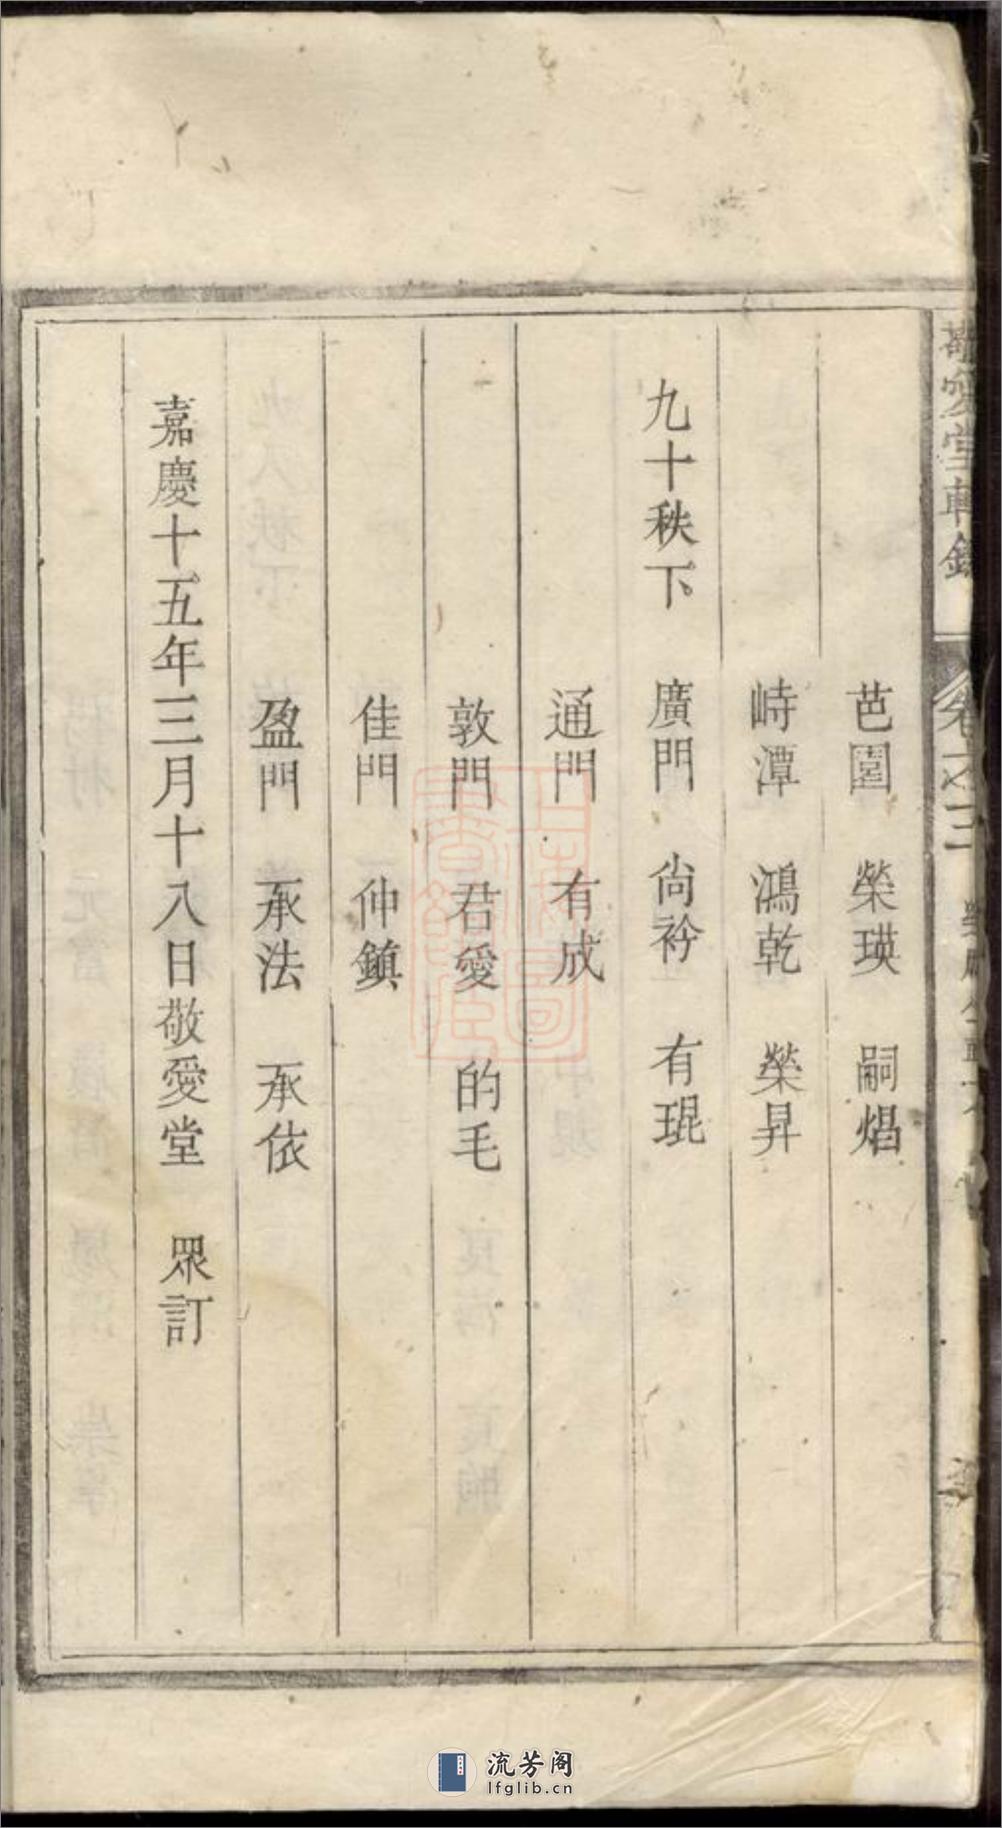 芭園 榮瑛 嗣焻
峙潭 鴻乾 榮昇
九十秩下 廣門 尙衿 有琨
通門 有成
敦門 君愛 的毛
佳門 仲鎮
盈門 承法 承依
嘉慶十五年三月十八日敬愛堂 眾訂
流芳阁
lfglib.cn